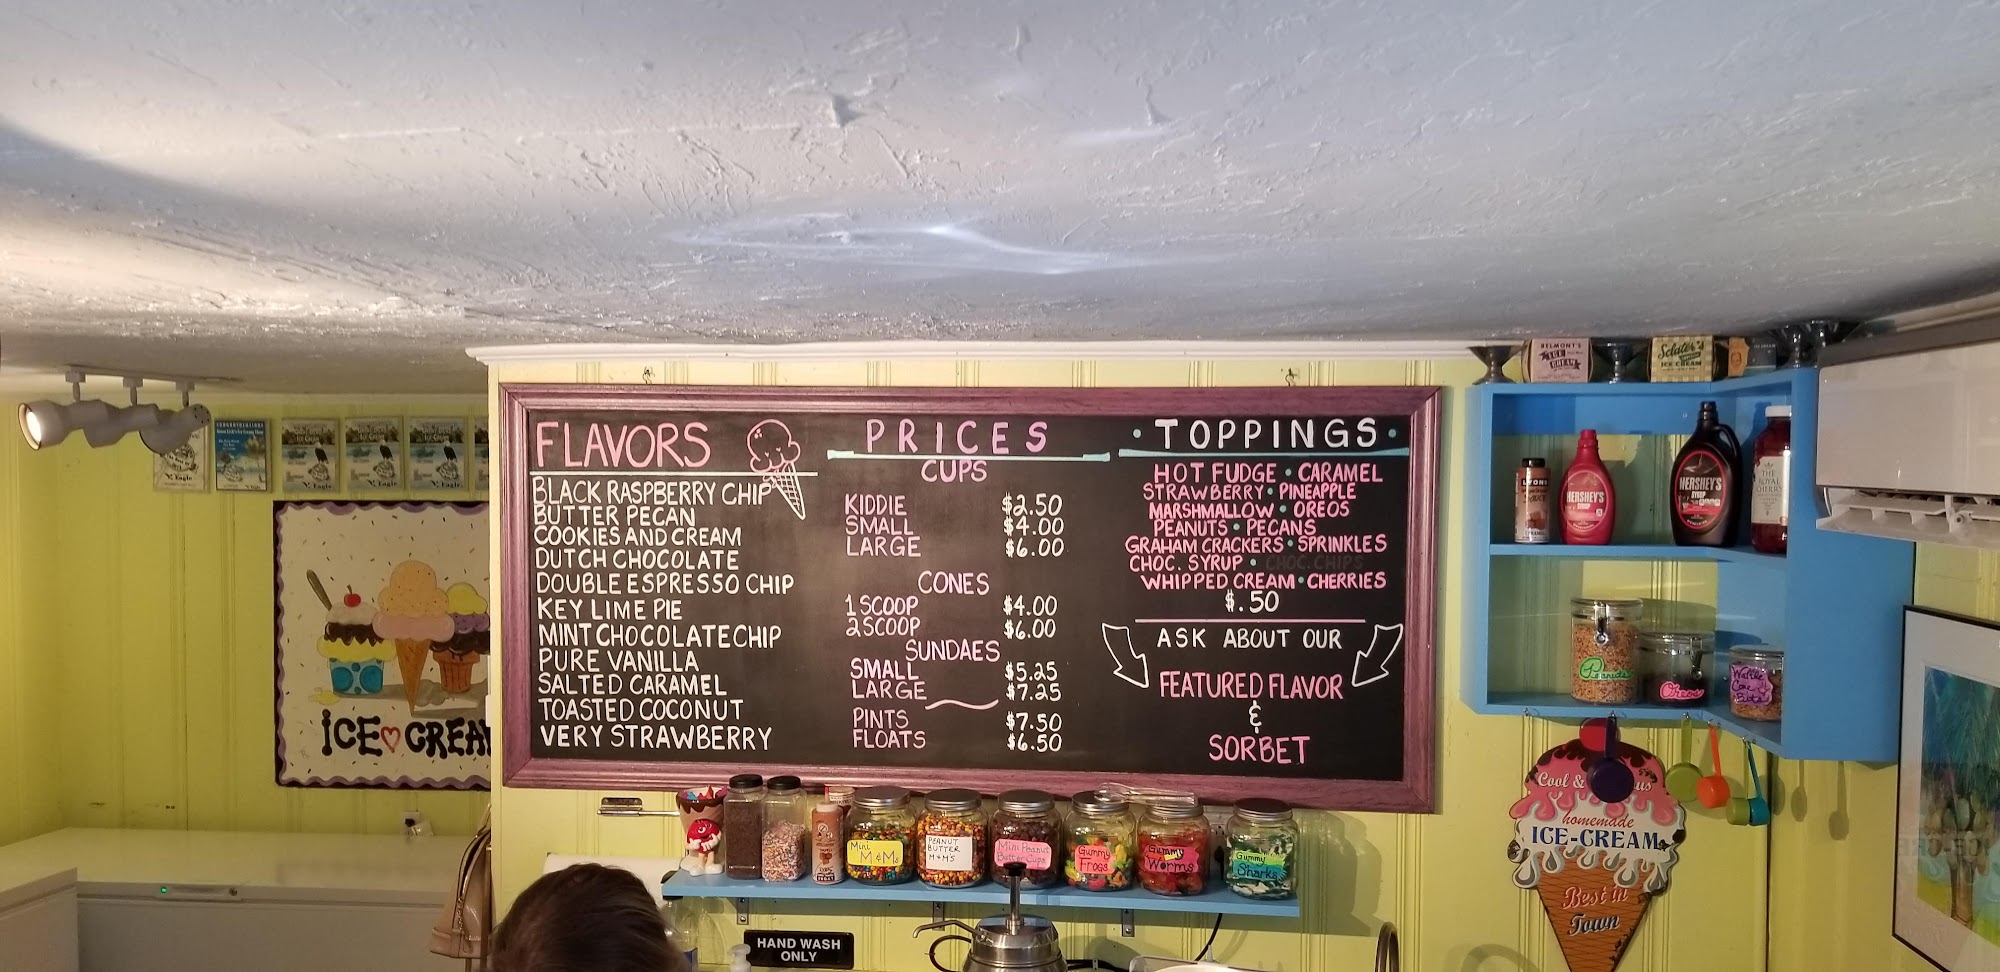 FLAVORS
BLACK RASPBERRY CHIP
BUTTER PECAN
COOKIES AND CREAM
DUTCH CHOCOLATE
DOUBLE ESPRESSO CHIP
KEY LIME PIE
MINT CHOCOLATE CHIP
PURE VANILLA
SALTED CARAMEL
TOASTED COCONUT
VERY STRAWBERRY
PRICES
CUPS
KIDDIE $2.50
SMALL $4.00
LARGE $6.00
CONES
1 SCOOP $4.00
2 SCOOP $6.00
SUNDAES
SMALL $5.25
LARGE $7.25
PINTS $7.50
FLOATS $6.50
• TOPPINGS •
HOT FUDGE • CARAMEL
STRAWBERRY • PINEAPPLE
MARSHMALLOW • OREOS
PEANUTS • PECANS
GRAHAM CRACKERS • SPRINKLES
CHOC. SYRUP • CHOC. CHIPS
WHIPPED CREAM • CHERRIES
$.50
ASK ABOUT OUR
FEATURED FLAVOR
&
SORBET
ICE CREA
Eagle
Eagle
Eagle
BELMONT'S
ICE
CREAM
Sclater's
ICE CREAM
LYONS
HERSHEY'S
SYRUP
HERSHEY'S
SYRUP
THE
ROYAL
CHERRY
Peanuts
Oreos
Waffle
Cone
Bits
Mini
M&Ms
PEANUT
BUTTER
M+M'S
Mini Peanut
Butter Cups
Gummy
Frogs
Gummy
Worms
Gummy
Sharks
HAND WASH
ONLY
Cool &
homemade
ICE-CREAM
Best in
Town